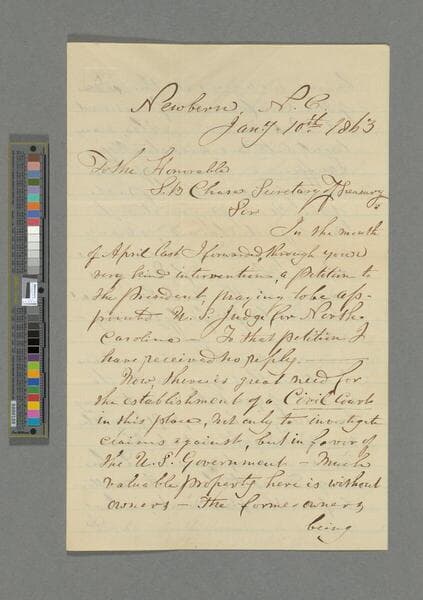 Newbern N. C.
Jany 10th 1863
To the Honorable
S. P. Chase Secretary of Treasury
Sir
In the month
of April last I forwarded, through your
very kind intervention, a petition to
the President, praying to be ap-
pointed U. S. Judge for North
Carolina — To that petition I
have received no reply. —
Now, there is great need for
the establishment of a Civil Court
in this place, not only to investigate
claims against, but in favor of
the U. S. Government — Much
valuable property here is without
owners — the former owners
being